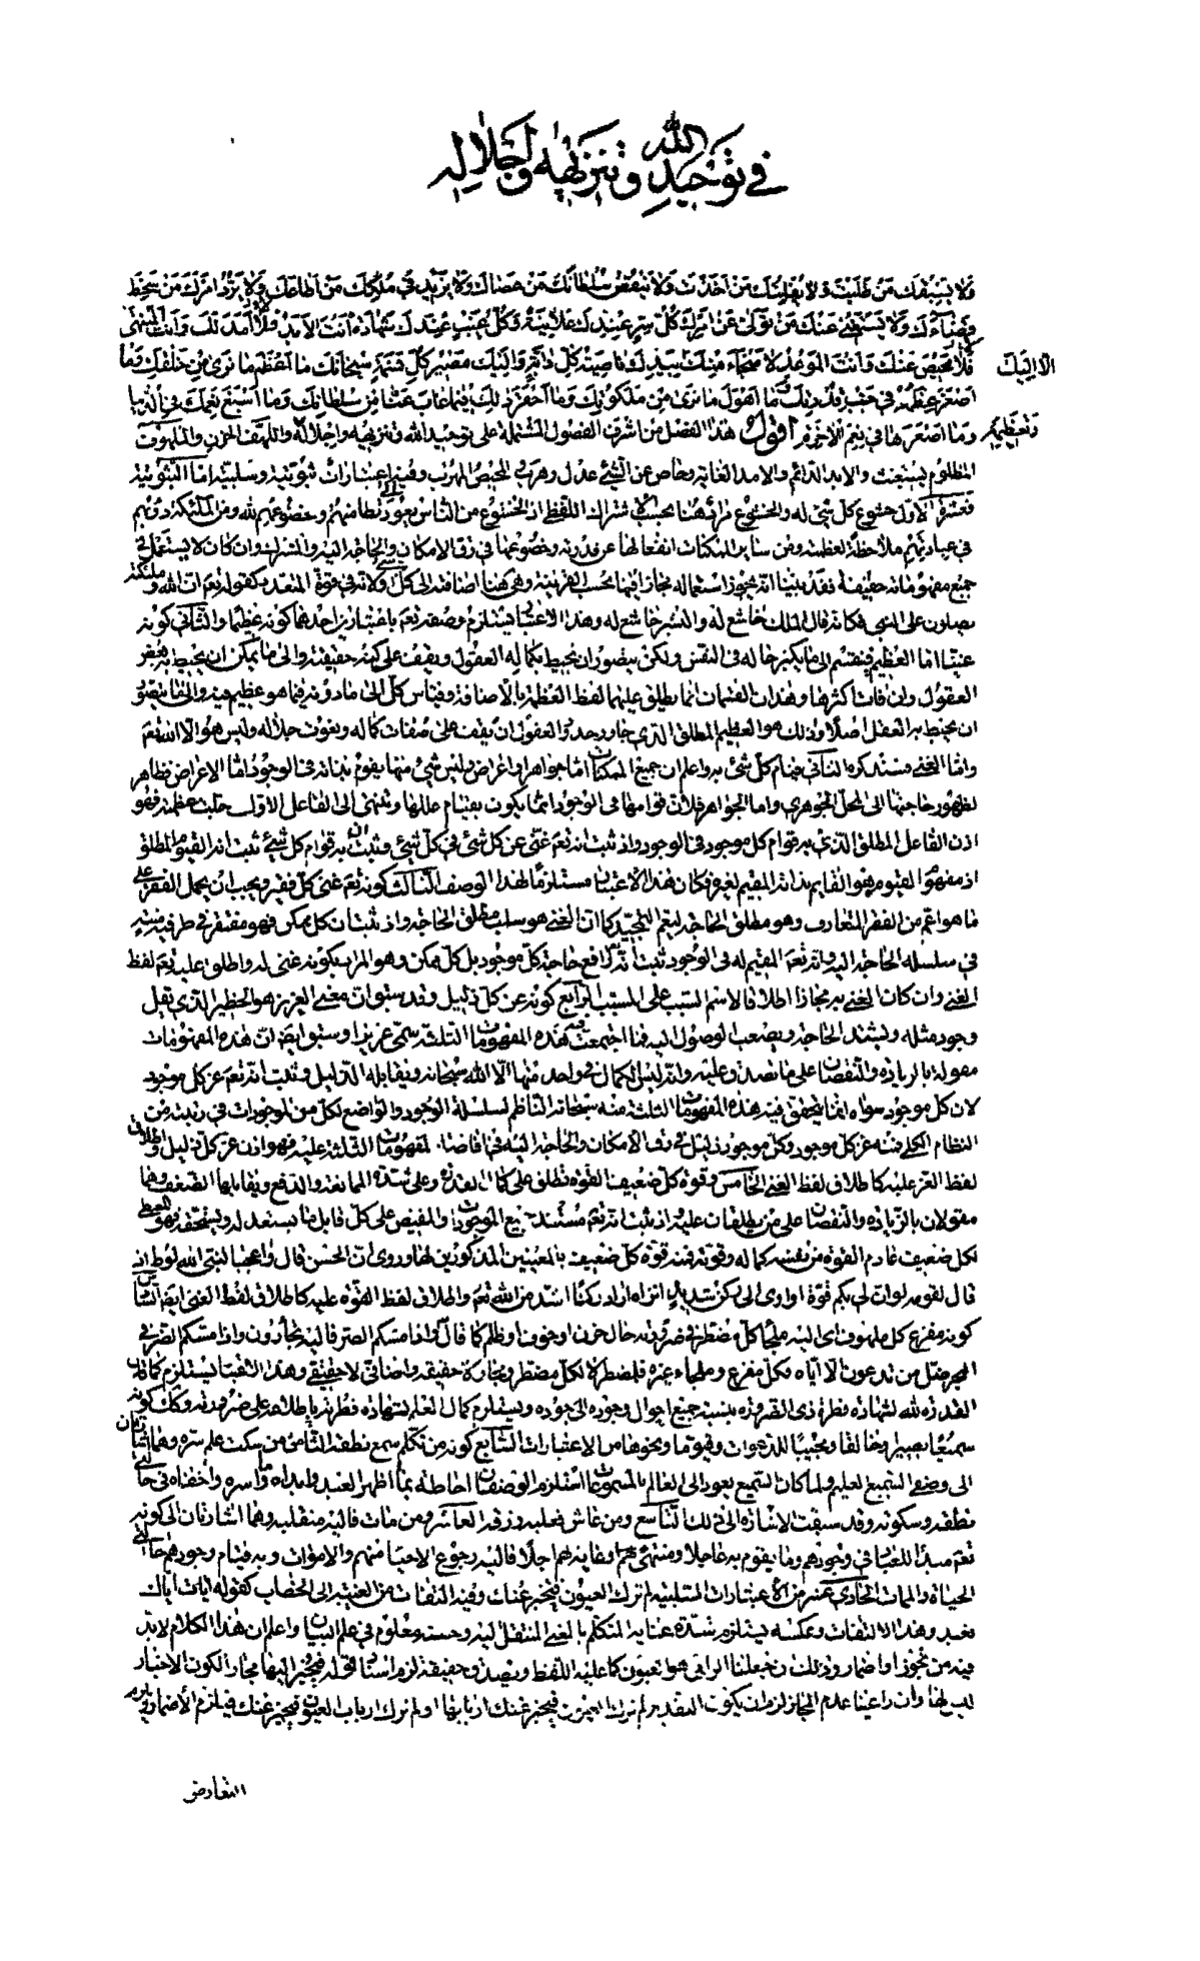 في توحيد الله وتنزيهه واجلاله
فلا يسبقك من طلبت ولا يفلتك من اخذت ولا ينقص سلطانك من عصاك ولا يزيد في ملكك من اطاعك ولا يرد امرك من سخط
قضاءك ولا يستغني عنك من تولى عن امرك كل سر عندك علانية وكل غيب عندك شهادة انت الابد فلا امد لك وانت المنتهى
فلا محيص عنك وانت الموعد لا منجاء منك بيدك ناصية كل دابة واليك مصير كل نسمة سبحانك ما اعظم ما نرى من خلقك وما
الا اليك
اصغر عظمه في جنب قدرتك وما اهول ما نرى من ملكوتك وما احقر ذلك فيما غاب عنا من سلطانك وما اسبغ نعمك في الدنيا
وما اصغرها في نعم الاخرة اقول هذا الفصل من اشرف الفصول المشتملة على توحيد الله وتنزيهه واجلاله واللهف الحزن والملهوف
المظلوم يستغيث والابد الدائم والامد الغاية وحاص عن الشيء عدل وهرب والمحيص المهرب وفيه اعتبارات ثبوتية وسلبية اما الثبوتية
فعشرة الاول خشوع كل شئ له والخشوع مراد هنا بحسب اشتراك اللفظ اذ الخشوع من الناس يعود الى تطامنهم وخضوعهم لله ومن الملئكة دؤبهم
في عبادتهم ملاحظة لعظمته ومن سائر الممكنات انفعالها عن قدرته وخضوعها في رق الامكان والحاجة اليه والمشترك وان كان لا يستعمل في
جميع مفهوماته حقيقة فقد بينا انه يجوز استعماله مجازا فيها بحسب القرينة وهي هنا اضافته الى كل شئ ولانه في قوة المتعدد كقوله تعم ان الله وملئكته
يصلون على النبي فكانه قال الملك خاشع له والبشر خاشع له وهذا الاعتبار يستلزم وصفه تعم باعتبارين احدهما كونه عظيما والثاني كونه
غنيا اما العظيم فينقسم الى ما يكبر حاله في النفس ولكن يتصور ان يحيط بكماله العقول ويقف على كنه حقيقته والى ما يمكن ان يحيط به بعض
العقول وان فات اكثرها وهذان القسمان انما يطلق عليهما لفظ العظمة بالاضافة وقياس كل الى ما دونه فيما هو عظيم فيه والى ما لا يتصور
ان يحيط به العقل اصلا وذلك هو العظيم المطلق الذي جاوز حدود العقول ان يقف على صفات كماله ونعوت جلاله وليس هو الا الله تعم
واما الغني فستذكره الثاني قيام كل شئ به واعلم ان جميع الممكنات اما جواهر او اعراض وليس شئ منها يقوم بذاته في الوجود اما الاعراض فظاهر
لظهور حاجتها الى المحل الجوهري واما الجواهر فلان قوامها في الوجود انما يكون بقيام عللها وتنتهي الى الفاعل الاول جلت عظمته فهو
اذن الفاعل المطلق الذي به قوام كل موجود في الوجود واذ ثبت انه تعم غني عن كل شئ في كل شئ وثبت ان به قوام كل شئ ثبت انه القيوم المطلق
اذ مفهوم القيوم هو القايم بذاته المقيم لغيره فكان هذا الاعتبار مستلزما لهذا الوصف الثالث كونه تعم غنى كل فقير ويجب ان يحمل الفقر على
ما هو اعم من الفقر المتعارف وهو مطلق الحاجة ليعم التمجيد كما ان الغنى هو سلب مطلق الحاجة واذ ثبت ان كل ممكن فهو مفتقر في طرفيه منته
في سلسلة الحاجة اليه وانه تعم المقيم له في الوجود ثبت انه رافع حاجة كل موجود بل كل ممكن وهو المراد بكونه غنى له واطلق عليه تعم لفظ
الغنى وان كان الغنى به مجازا اطلاقا لاسم السبب على المسبب الرابع كونه عز كل ذليل وقد سبق ان معنى العزيز هو الخطير الذي يقل
وجود مثله وتشتد الحاجة ويصعب الوصول اليه فما اجتمعت فيه هذه المفهومات الثلثة سمي عزيزا وسبق ايضا ان هذه المفهومات
مقولة بالزيادة والنقصان على ما تصدق عليه وانه ليس الكمال في واحد منها الا الله سبحانه ويقابله الذليل وثبت انه تعم عز كل موجود
لان كل موجود سواه انما يتحقق فيه هذه المفهومات الثلثة منه سبحانه الناظم لسلسلة الوجود والواضع لكل من الموجودات في رتبته من
النظام الكلي فمنه عز كل موجود وكل موجود ذليل في رق الامكان والحاجة اليه في افاضة المفهومات الثلثة عليه فهو اذن عز كل ذليل واطلاق
لفظ العز عليه كاطلاق لفظ الغنى الخامس وقوة كل ضعيف القوة تطلق على كمال القدرة وعلى شدة الممانعة والدفع ويقابلها الضعف وهما
مقولان بالزيادة والنقصان على من يطلقان عليه واذ ثبت انه تعم مستند جميع الموجودات والمفيض على كل قابل ما يستعد له ويستحقه فهو المعطي
لكل ضعيف عادم القوة من نفسه كماله وقوته فمنه قوة كل ضعيف بالمعنيين المذكورين لها وروي ان الحسن قال واعجبا لنبي الله لوط اذ
قال لقومه لو ان لي بكم قوة او اوي الى ركن شديد اتراه اراد ركنا اشد من الله تعم واطلاق لفظ القوة عليه كاطلاق لفظ الغنى ايضا السادس
كونه مفزع كل ملهوف اي اليه ملجأ كل مضطر في ضرورته حال حزن او خوف او ظلم كما قال واذا مسكم الضر فاليه تجأرون واذا مسكم الضر في
البحر ضل من تدعون الا اياه وكل مفزع وملجاء غيره فلمضطر لا لكل مضطر ومجازه حقيقة واضافي لا حقيقي وهذا الاعتبار يستلزم كمال
القدرة لله لشهادة فطرة ذي الضرورة بنسبة جميع احوال وجوده الى جوده ويستلزم كمال العلم لشهادة فطرته باطلاعه على ضرورته وكذا كونه
سميعا بصيرا وخالقا ومجيبا للدعوات وقيوما ونحوها من الاعتبارات السابع كونه من تكلم سمع نطقه الثامن من سكت علم سره وهما اشارتان
الى وصفي السميع العليم ولما كان السميع يعود الى العالم بالمسموعات استلزم الوصفان احاطته بما اظهر العبد وابداه وما اسره واخفاه في حالتي
نطقه وسكوته وقد سبقت الاشارة الى ذلك التاسع ومن عاش فعليه رزقه العاشر ومن مات فاليه منقلبه وهما اشارتان الى كونه
تعم مبدأ للعباد في وجودهم وما يقوم به عاجلا ومنتهى لهم وغاية لهم اجلا فاليه رجوع الاحيا منهم والاموات وبه قيام وجودهم حالتي
الحياة والممات الحادي عشر من الاعتبارات السلبية لم ترك العيون فتخبر عنك وفيه التفات من الغيبة الى الخطاب كقوله اياك اياك
نعبد وهذا الالتفات وعكسه يستلزم شدة عناية المتكلم بالمعنى المنتقل اليه وحسنه معلوم في علم البيان واعلم ان هذا الكلام لا بد
فيه من تجوز او اضمار وذلك
لها وان راعينا عدم المجاز لزم ان يكون التقدير لم ترك العيون فتخبر عنك اربابها او لم ترك ارباب العيون فتخبر عنك فيلزم الاضمار ويلزم
التعارض